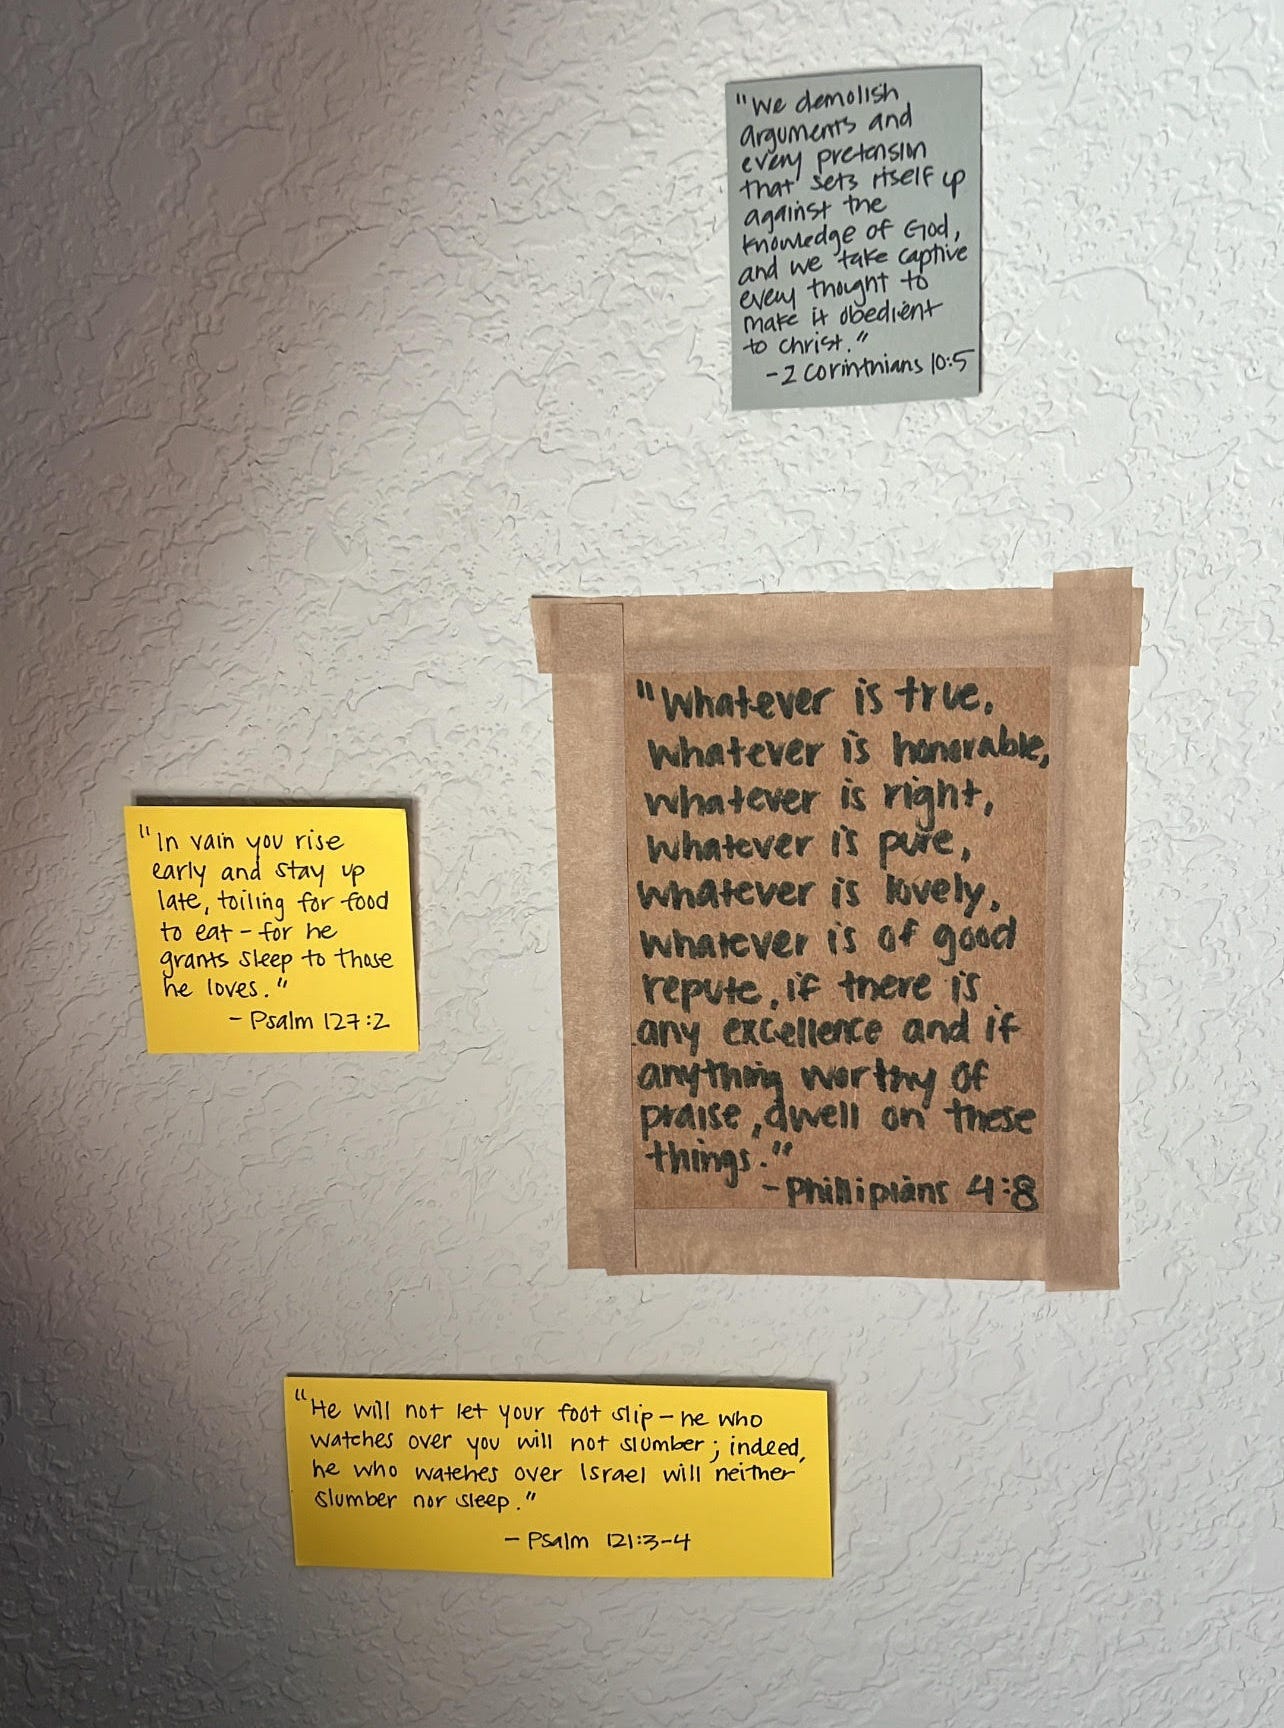 "We demolish
arguments and
every pretension
that sets itself up
against the
knowledge of God,
and we take captive
every thought to
make it obedient
to Christ."
-2 Corinthians 10:5
"Whatever is true,
whatever is honorable,
whatever is right,
whatever is pure,
whatever is lovely,
whatever is of good
repute, if there is
any excellence and if
anything worthy of
praise, dwell on these
things."
-Phillipians 4:8
"In vain you rise
early and stay up
late, toiling for food
to eat - for he
grants sleep to those
he loves."
- Psalm 127:2
"He will not let your foot slip - he who
watches over you will not slumber; indeed,
he who watches over Israel will neither
slumber nor sleep."
- Psalm 121:3-4